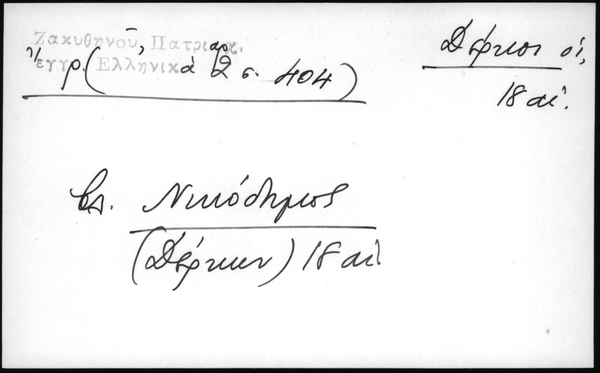 Ζακυθηνοῦ, Πατριαρ.
ἔγγρ. (Ἑλληνικά 2 σ. 404)
Δέρκοι οἱ,
18 αἰ.
βλ. Νικόδημος
(Δέρκων) 18 αἰ